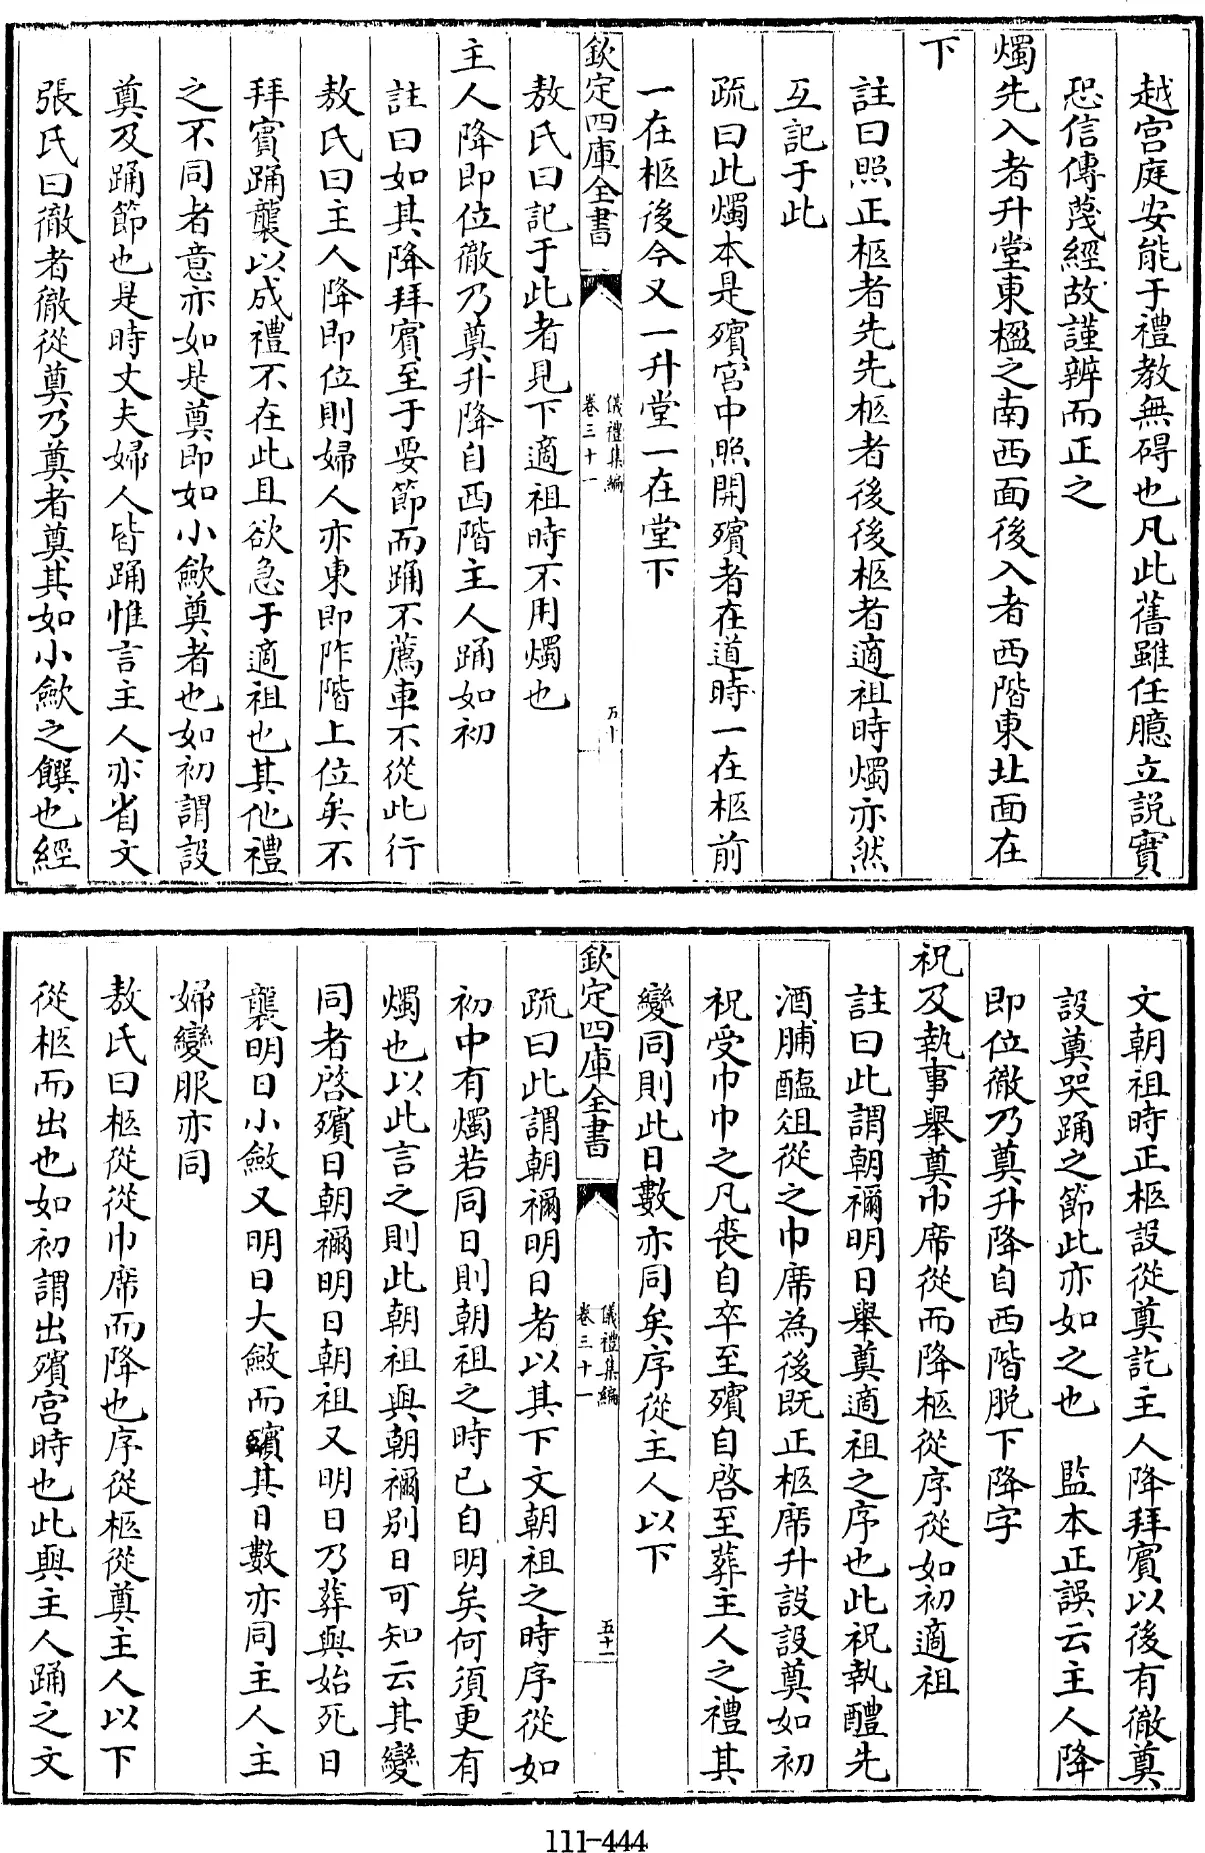 越宫庭安能于禮教無碍也凡此舊雖任臆立説實
恐信傳蔑經故謹辨而正之
燭先入者升堂東楹之南西面後入者西階東北面在
下
註曰照正柩者先先柩者後後柩者適祖時燭亦然
互記于此
疏曰此燭本是殯宫中照開殯者在道時一在柩前
一在柩後今又一升堂一在堂下
欽定四庫全書
儀禮集編
卷三十一
五十
敖氏曰記于此者見下適祖時不用燭也
主人降即位徹乃奠升降自西階主人踊如初
註曰如其降拜賓至于要節而踊不薦車不從此行
敖氏曰主人降即位則婦人亦東即阼階上位矣不
拜賓踊襲以成禮不在此且欲急于適祖也其他禮
之不同者意亦如是奠即如小斂奠者也如初謂設
奠及踊節也是時丈夫婦人皆踊惟言主人亦省文
張氏曰徹者徹從奠乃奠者奠其如小歛之饌也經
文朝祖時正柩設從奠訖主人降拜賓以後有徹奠
設奠哭踊之節此亦如之也　監本正誤云主人降
即位徹乃奠升降自西階脱下降字
祝及執事舉奠巾席從而降柩從序從如初適祖
註曰此謂朝禰明日舉奠適祖之序也此祝執醴先
酒脯醢俎從之巾席為後既正柩席升設設奠如初
祝受巾巾之凡喪自卒至殯自啓至葬主人之禮其
變同則此日數亦同矣序從主人以下
欽定四庫全書
儀禮集編
卷三十一
五十一
疏曰此謂朝禰明日者以其下文朝祖之時序從如
初中有燭若同日則朝祖之時已自明矣何須更有
燭也以此言之則此朝祖與朝禰别日可知云其變
同者啓殯日朝禰明日朝祖又明日乃葬與始死日
襲明日小斂又明日大斂而殯其日數亦同主人主
婦變服亦同
敖氏曰柩從從巾席而降也序從柩從奠主人以下
從柩而出也如初謂出殯宫時也此與主人踊之文
111-444